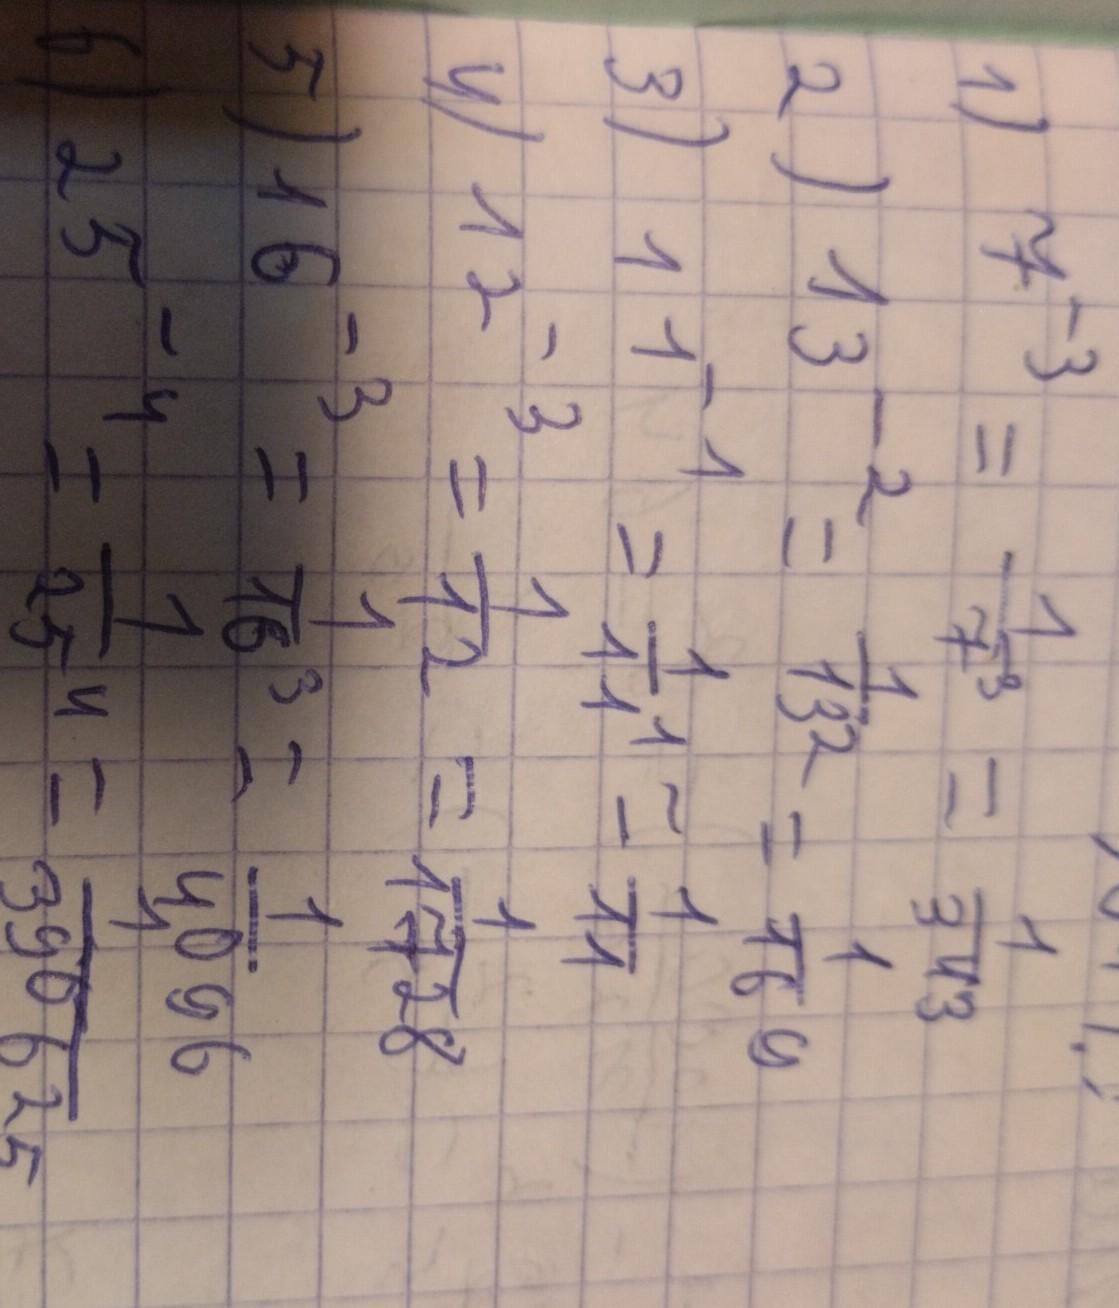 1) 7⁻³ = 1/7³ = 1/343
2) 13⁻² = 1/13² = 1/169
3) 11⁻¹ = 1/11¹ = 1/11
4) 12⁻³ = 1/12 = 1/1728
5) 16⁻³ = 1/16³ = 1/4096
6) 25⁻⁴ = 1/25⁴ = 1/390625